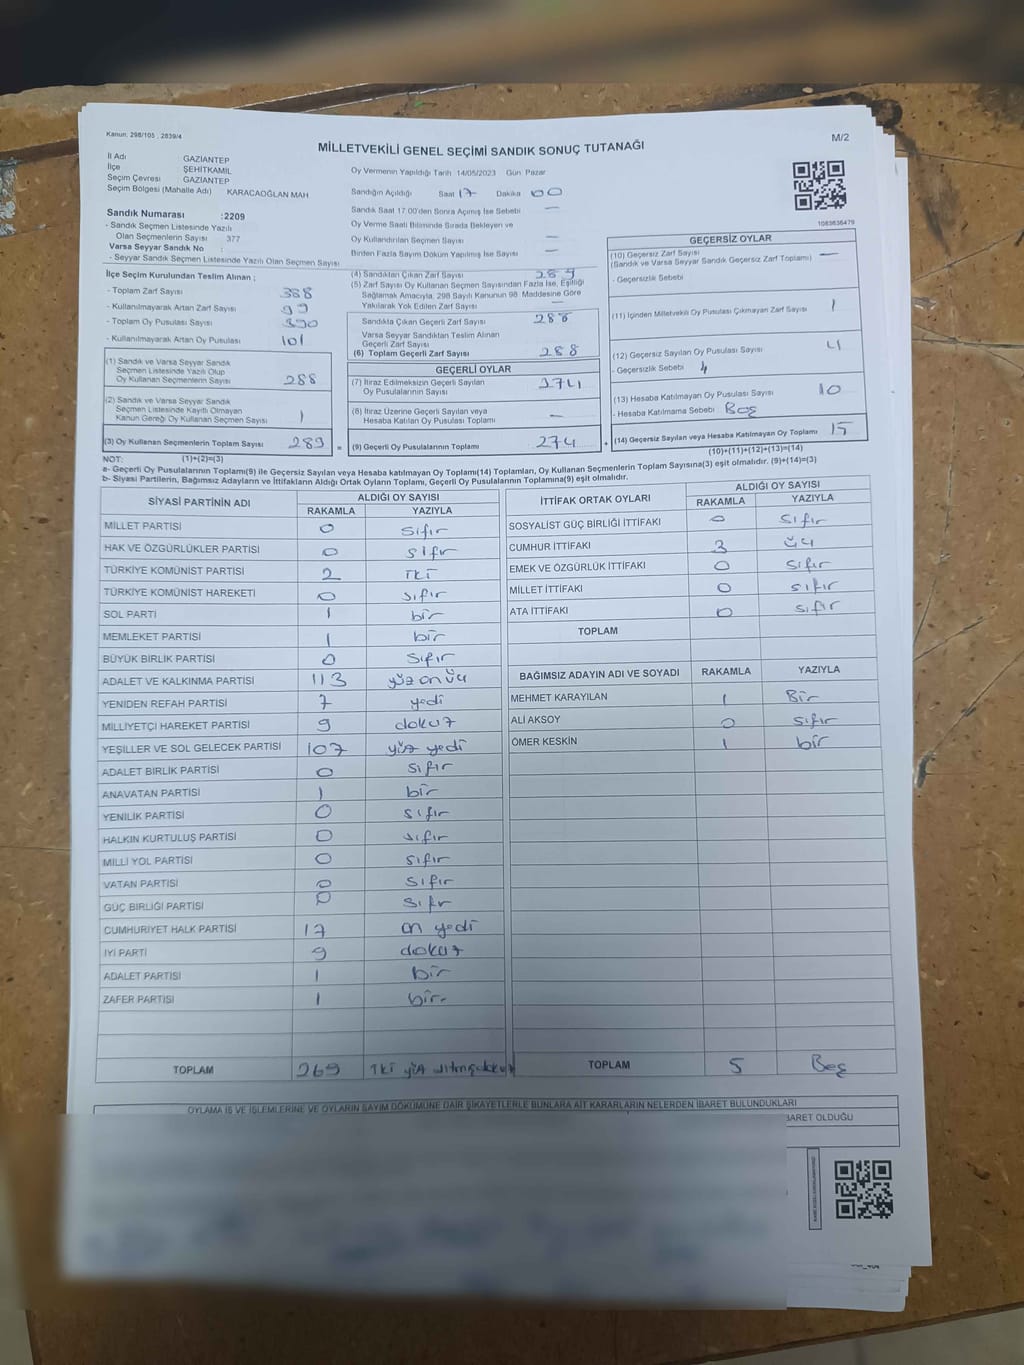 Kanun: 298/105 , 2839/4
M/2
MİLLETVEKİLİ GENEL SEÇİMİ SANDIK SONUÇ TUTANAĞI
İl Adı GAZİANTEP
İlçe ŞEHİTKAMİL
Seçim Çevresi GAZİANTEP
Seçim Bölgesi (Mahalle Adı) KARACAOĞLAN MAH
Sandık Numarası :2209
- Sandık Seçmen Listesinde Yazılı
Olan Seçmenlerin Sayısı 377
Varsa Seyyar Sandık No :
- Seyyar Sandık Seçmen Listesinde Yazılı Olan Seçmen Sayısı
İlçe Seçim Kurulundan Teslim Alınan ;
- Toplam Zarf Sayısı 388
- Kullanılmayarak Artan Zarf Sayısı 99
- Toplam Oy Pusulası Sayısı 390
- Kullanılmayarak Artan Oy Pusulası 101
(1) Sandık ve Varsa Seyyar Sandık
Seçmen Listesinde Yazılı Olup
Oy Kullanan Seçmenlerin Sayısı 288
(2) Sandık ve Varsa Seyyar Sandık
Seçmen Listesinde Kayıtlı Olmayan
Kanun Gereği Oy Kullanan Seçmen Sayısı 1
(3) Oy Kullanan Seçmenlerin Toplam Sayısı 289 =
Oy Vermenin Yapıldığı Tarih 14/05/2023 Gün Pazar
Sandığın Açıldığı Saat 17 Dakika 00
Sandık Saat 17:00'den Sonra Açılmış İse Sebebi —
Oy Verme Saati Bitiminde Sırada Bekleyen ve
Oy Kullandırılan Seçmen Sayısı —
Birden Fazla Sayım Döküm Yapılmış İse Sayısı —
(4) Sandıktan Çıkan Zarf Sayısı 289
(5) Zarf Sayısı Oy Kullanan Seçmen Sayısından Fazla İse, Eşitliği
Sağlamak Amacıyla, 298 Sayılı Kanunun 98. Maddesine Göre
Yakılarak Yok Edilen Zarf Sayısı —
Sandıkta Çıkan Geçerli Zarf Sayısı 288
Varsa Seyyar Sandıktan Teslim Alınan
Geçerli Zarf Sayısı
(6) Toplam Geçerli Zarf Sayısı 288
GEÇERLİ OYLAR
(7) İtiraz Edilmeksizin Geçerli Sayılan
Oy Pusulalarının Sayısı 274
(8) İtiraz Üzerine Geçerli Sayılan veya
Hesaba Katılan Oy Pusulası Toplamı —
(9) Geçerli Oy Pusulalarının Toplamı 274 +
1083636479
GEÇERSİZ OYLAR
(10) Geçersiz Zarf Sayısı —
(Sandık ve Varsa Seyyar Sandık Geçersiz Zarf Toplamı)
- Geçersizlik Sebebi
(11) İçinden Milletvekili Oy Pusulası Çıkmayan Zarf Sayısı 1
(12) Geçersiz Sayılan Oy Pusulası Sayısı 4
- Geçersizlik Sebebi
(13) Hesaba Katılmayan Oy Pusulası Sayısı 10
- Hesaba Katılmama Sebebi Boş
(14) Geçersiz Sayılan veya Hesaba Katılmayan Oy Toplamı 15
NOT: (1)+(2)=(3)
(10)+(11)+(12)+(13)=(14)
a- Geçerli Oy Pusulalarının Toplamı(9) ile Geçersiz Sayılan veya Hesaba katılmayan Oy Toplamı(14) Toplamları, Oy Kullanan Seçmenlerin Toplam Sayısına(3) eşit olmalıdır. (9)+(14)=(3)
b- Siyasi Partilerin, Bağımsız Adayların ve İttifakların Aldığı Ortak Oyların Toplamı, Geçerli Oy Pusulalarının Toplamına(9) eşit olmalıdır.
SİYASİ PARTİNİN ADI ALDIĞI OY SAYISI
RAKAMLA YAZIYLA
MİLLET PARTİSİ 0 sıfır
HAK VE ÖZGÜRLÜKLER PARTİSİ 0 sıfır
TÜRKİYE KOMÜNİST PARTİSİ 2 iki
TÜRKİYE KOMÜNİST HAREKETİ 0 sıfır
SOL PARTİ 1 bir
MEMLEKET PARTİSİ 1 bir
BÜYÜK BİRLİK PARTİSİ 0 sıfır
ADALET VE KALKINMA PARTİSİ 113 yüz on üç
YENİDEN REFAH PARTİSİ 7 yedi
MİLLİYETÇİ HAREKET PARTİSİ 9 dokuz
YEŞİLLER VE SOL GELECEK PARTİSİ 107 yüz yedi
ADALET BİRLİK PARTİSİ 0 sıfır
ANAVATAN PARTİSİ 1 bir
YENİLİK PARTİSİ 0 sıfır
HALKIN KURTULUŞ PARTİSİ 0 sıfır
MİLLİ YOL PARTİSİ 0 sıfır
VATAN PARTİSİ 0 sıfır
GÜÇ BİRLİĞİ PARTİSİ 0 sıfır
CUMHURİYET HALK PARTİSİ 17 on yedi
İYİ PARTİ 9 dokuz
ADALET PARTİSİ 1 bir
ZAFER PARTİSİ 1 bir
TOPLAM 269 iki yüz altmışdokuz
İTTİFAK ORTAK OYLARI ALDIĞI OY SAYISI
RAKAMLA YAZIYLA
SOSYALİST GÜÇ BİRLİĞİ İTTİFAKI 0 sıfır
CUMHUR İTTİFAKI 3 üç
EMEK VE ÖZGÜRLÜK İTTİFAKI 0 sıfır
MİLLET İTTİFAKI 0 sıfır
ATA İTTİFAKI 0 sıfır
TOPLAM
BAĞIMSIZ ADAYIN ADI VE SOYADI RAKAMLA YAZIYLA
MEHMET KARAYILAN 1 Bir
ALİ AKSOY 0 sıfır
ÖMER KESKİN 1 bir
TOPLAM 5 Beş
OYLAMA İŞ VE İŞLEMLERİNE VE OYLARIN SAYIM DÖKÜMÜNE DAİR ŞİKAYETLERLE BUNLARA AİT KARARLARIN NELERDEN İBARET BULUNDUKLARI
BARET OLDUĞU